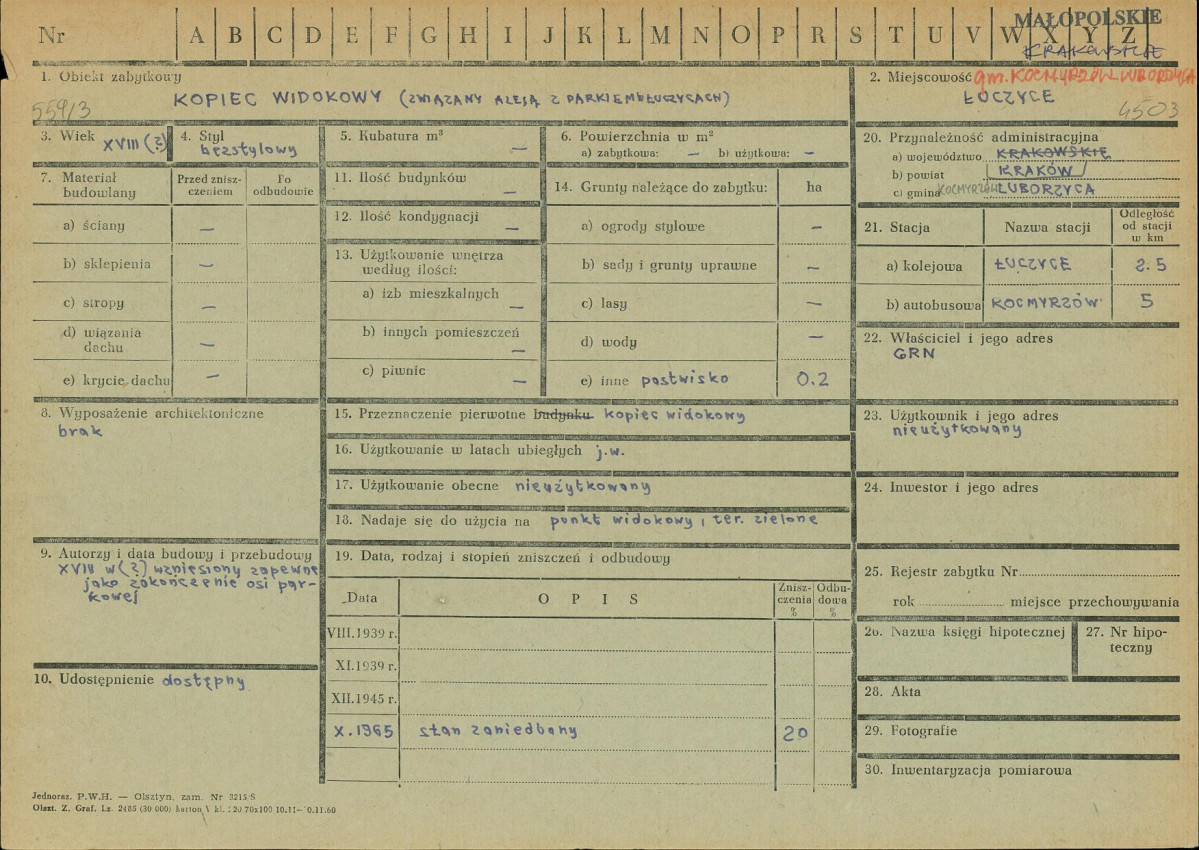 Nr A B C D E F G H I J K L M N O P R S T U V W X Y Z
MAŁOPOLSKIE
KRAKOWSKIE
1. Obiekt zabytkowy
559/3
KOPIEC WIDOKOWY (ZWIĄZANY ALEJĄ Z PARKIEM W ŁUCZYCACH)
2. Miejscowość gm. KOCMYRZÓW LUBORZYCA
ŁUCZYCE
4503
3. Wiek XVIII (?)
4. Styl
bezstylowy
5. Kubatura m³
—
6. Powierzchnia w m²
a) zabytkowa: — b) użytkowa: —
7. Materiał budowlany
Przed zniszczeniem
Po odbudowie
a) ściany —
b) sklepienia —
c) stropy —
d) wiązania dachu —
e) krycie dachu —
8. Wyposażenie architektoniczne
brak
9. Autorzy i data budowy i przebudowy
XVIII w (?) wzniesiony zapewne
jako zakończenie osi par-
kowej
10. Udostępnienie dostępny
11. Ilość budynków
—
12. Ilość kondygnacji
—
13. Użytkowanie wnętrza
według ilości:
a) izb mieszkalnych —
b) innych pomieszczeń —
c) piwnic —
14. Grunty należące do zabytku: ha
a) ogrody stylowe —
b) sady i grunty uprawne —
c) lasy —
d) wody —
e) inne pastwisko 0.2
15. Przeznaczenie pierwotne budynku kopiec widokowy
16. Użytkowanie w latach ubiegłych j.w.
17. Użytkowanie obecne nieużytkowany
18. Nadaje się do użycia na punkt widokowy, ter. zielone
19. Data, rodzaj i stopień zniszczeń i odbudowy
Data O P I S Zniszczenia % Odbudowa %
VIII.1939 r.
XI.1939 r.
XII.1945 r.
X.1965 stan zaniedbany 20
20. Przynależność administracyjna
a) województwo KRAKOWSKIE
b) powiat KRAKÓW
c) gmina KOCMYRZÓW LUBORZYCA
21. Stacja Nazwa stacji Odległość od stacji w km
a) kolejowa ŁUCZYCE 2.5
b) autobusowa KOCMYRZÓW 5
22. Właściciel i jego adres
GRN
23. Użytkownik i jego adres
nieużytkowany
24. Inwestor i jego adres
25. Rejestr zabytku Nr
rok miejsce przechowywania
26. Nazwa księgi hipotecznej
27. Nr hipo-
teczny
28. Akta
29. Fotografie
30. Inwentaryzacja pomiarowa
Jednoraz. P.W.H. — Olsztyn, zam. Nr 3215/S
Olszt. Z. Graf. Lz. 2485 (30 000) karton